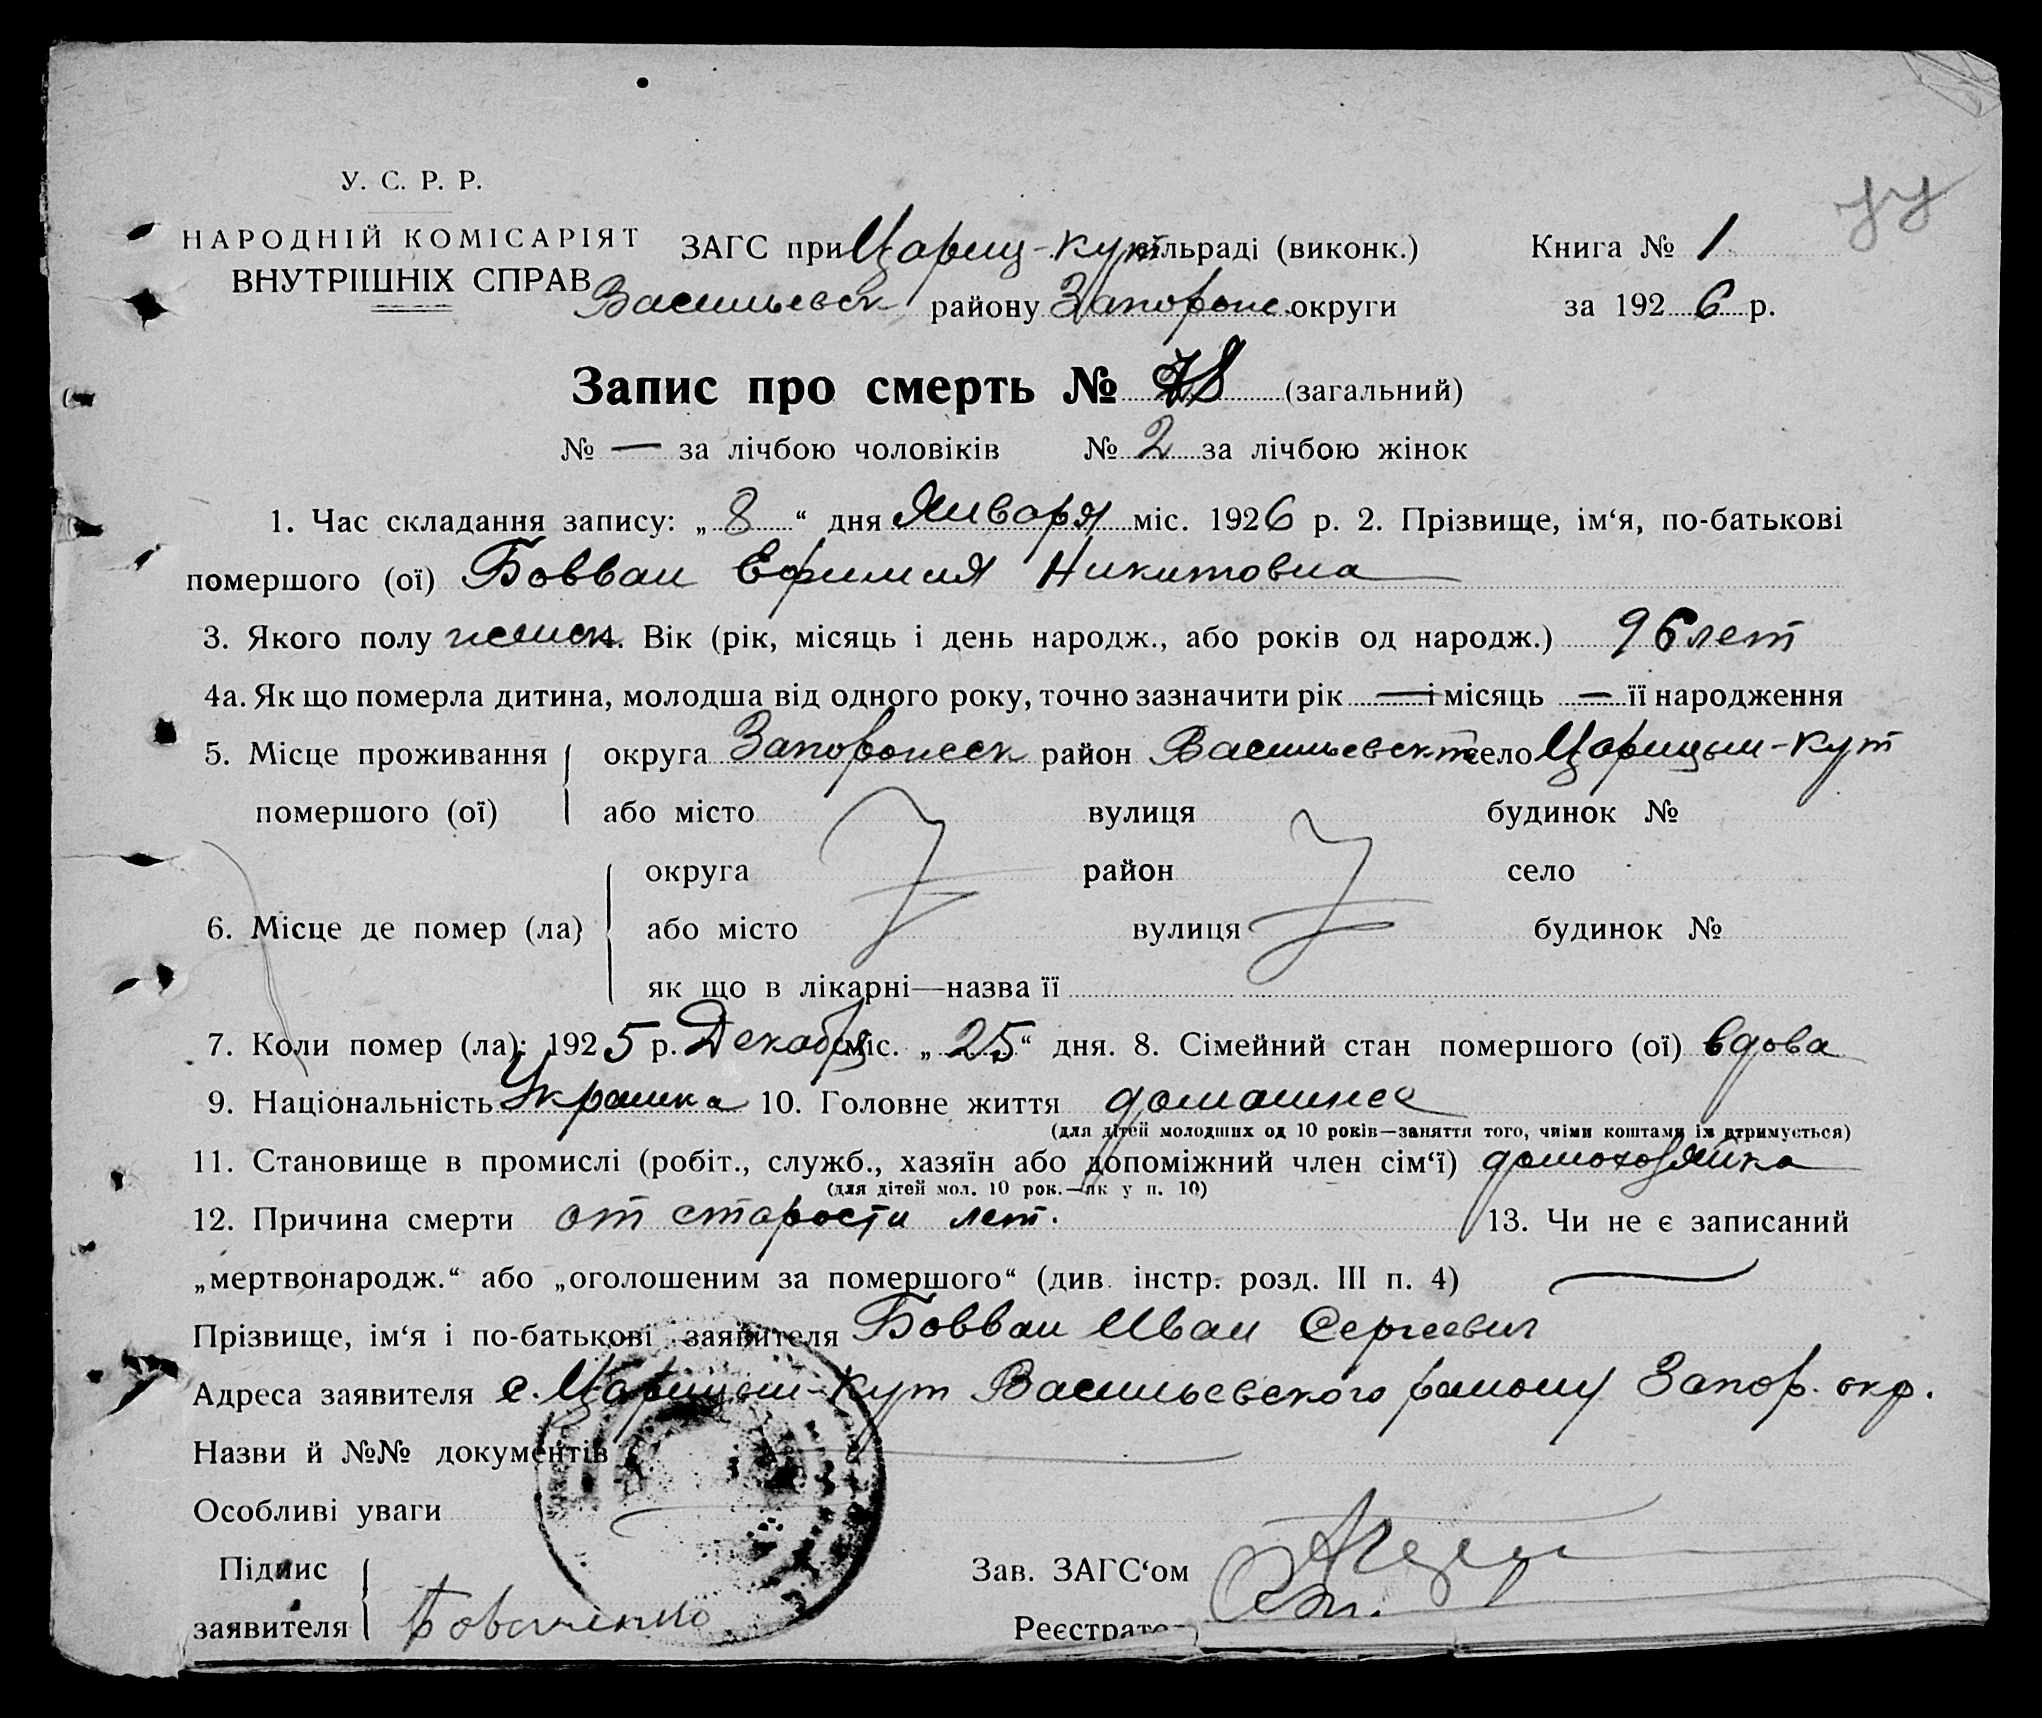 У. С. Р. Р.
НАРОДНІЙ КОМІСАРІЯТ
ВНУТРІШНІХ СПРАВ
ЗАГС при Цариц-Кут сільраді (виконк.)
Васильевск району Запорож. округи
Книга № 1
за 1926 р.
Запис про смерть № 8 (загальний)
№ — за лічбою чоловіків № 2 за лічбою жінок
1. Час складання запису: „8“ дня Января міс. 1926 р. 2. Прізвище, ім‘я, по-батькові
помершого (ої) Бовван Ефимия Никитовна
3. Якого полу женск. Вік (рік, місяць і день народж., або років од народж.) 96 лет
4а. Як що померла дитина, молодша від одного року, точно зазначити рік — і місяць — її народження
5. Місце проживання помершого (ої) округа Запорожск район Васильевск село Царицын-Кут
або місто вулиця будинок №
6. Місце де помер (ла) округа район село
або місто вулиця будинок №
як що в лікарні—назва її
7. Коли помер (ла): 1925 р. Декабря міс. „25“ дня. 8. Сімейний стан помершого (ої) вдова
9. Національність Украинка 10. Головне життя домашнее
(для дітей молодших од 10 років—заняття того, чиїми коштами їх втримується)
11. Становище в промислі (робіт., служб., хазяїн або допоміжний член сім‘ї) домохозяйка
(для дітей мол. 10 рок.—як у п. 10)
12. Причина смерти от старости лет. 13. Чи не є записаний
„мертвонародж.“ або „оголошеним за помершого“ (див. інстр. розд. III п. 4) —
Прізвище, ім‘я і по-батькові заявителя Бовван Иван Сергеевич
Адреса заявителя с. Царицын-Кут Васильевского району Запор. окр.
Назви й №№ документів
Особливі уваги
Підпис
заявителя
Зав. ЗАГС‘ом
Реєстратор